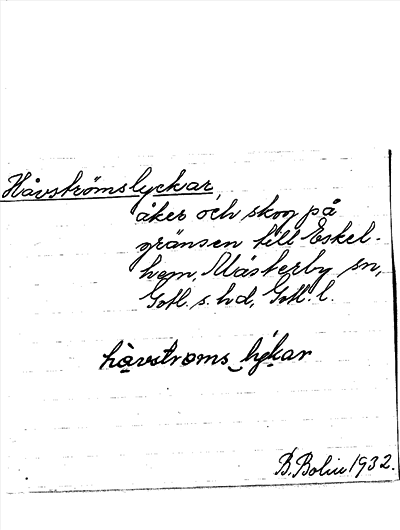 Håvströmslyckar,
åker och skog på
gränsen till Eskel-
hem, Mästerby sn,
Gotl. s. hd, Gotl. l.
håvstroms lykar
B. Bolin 1932.